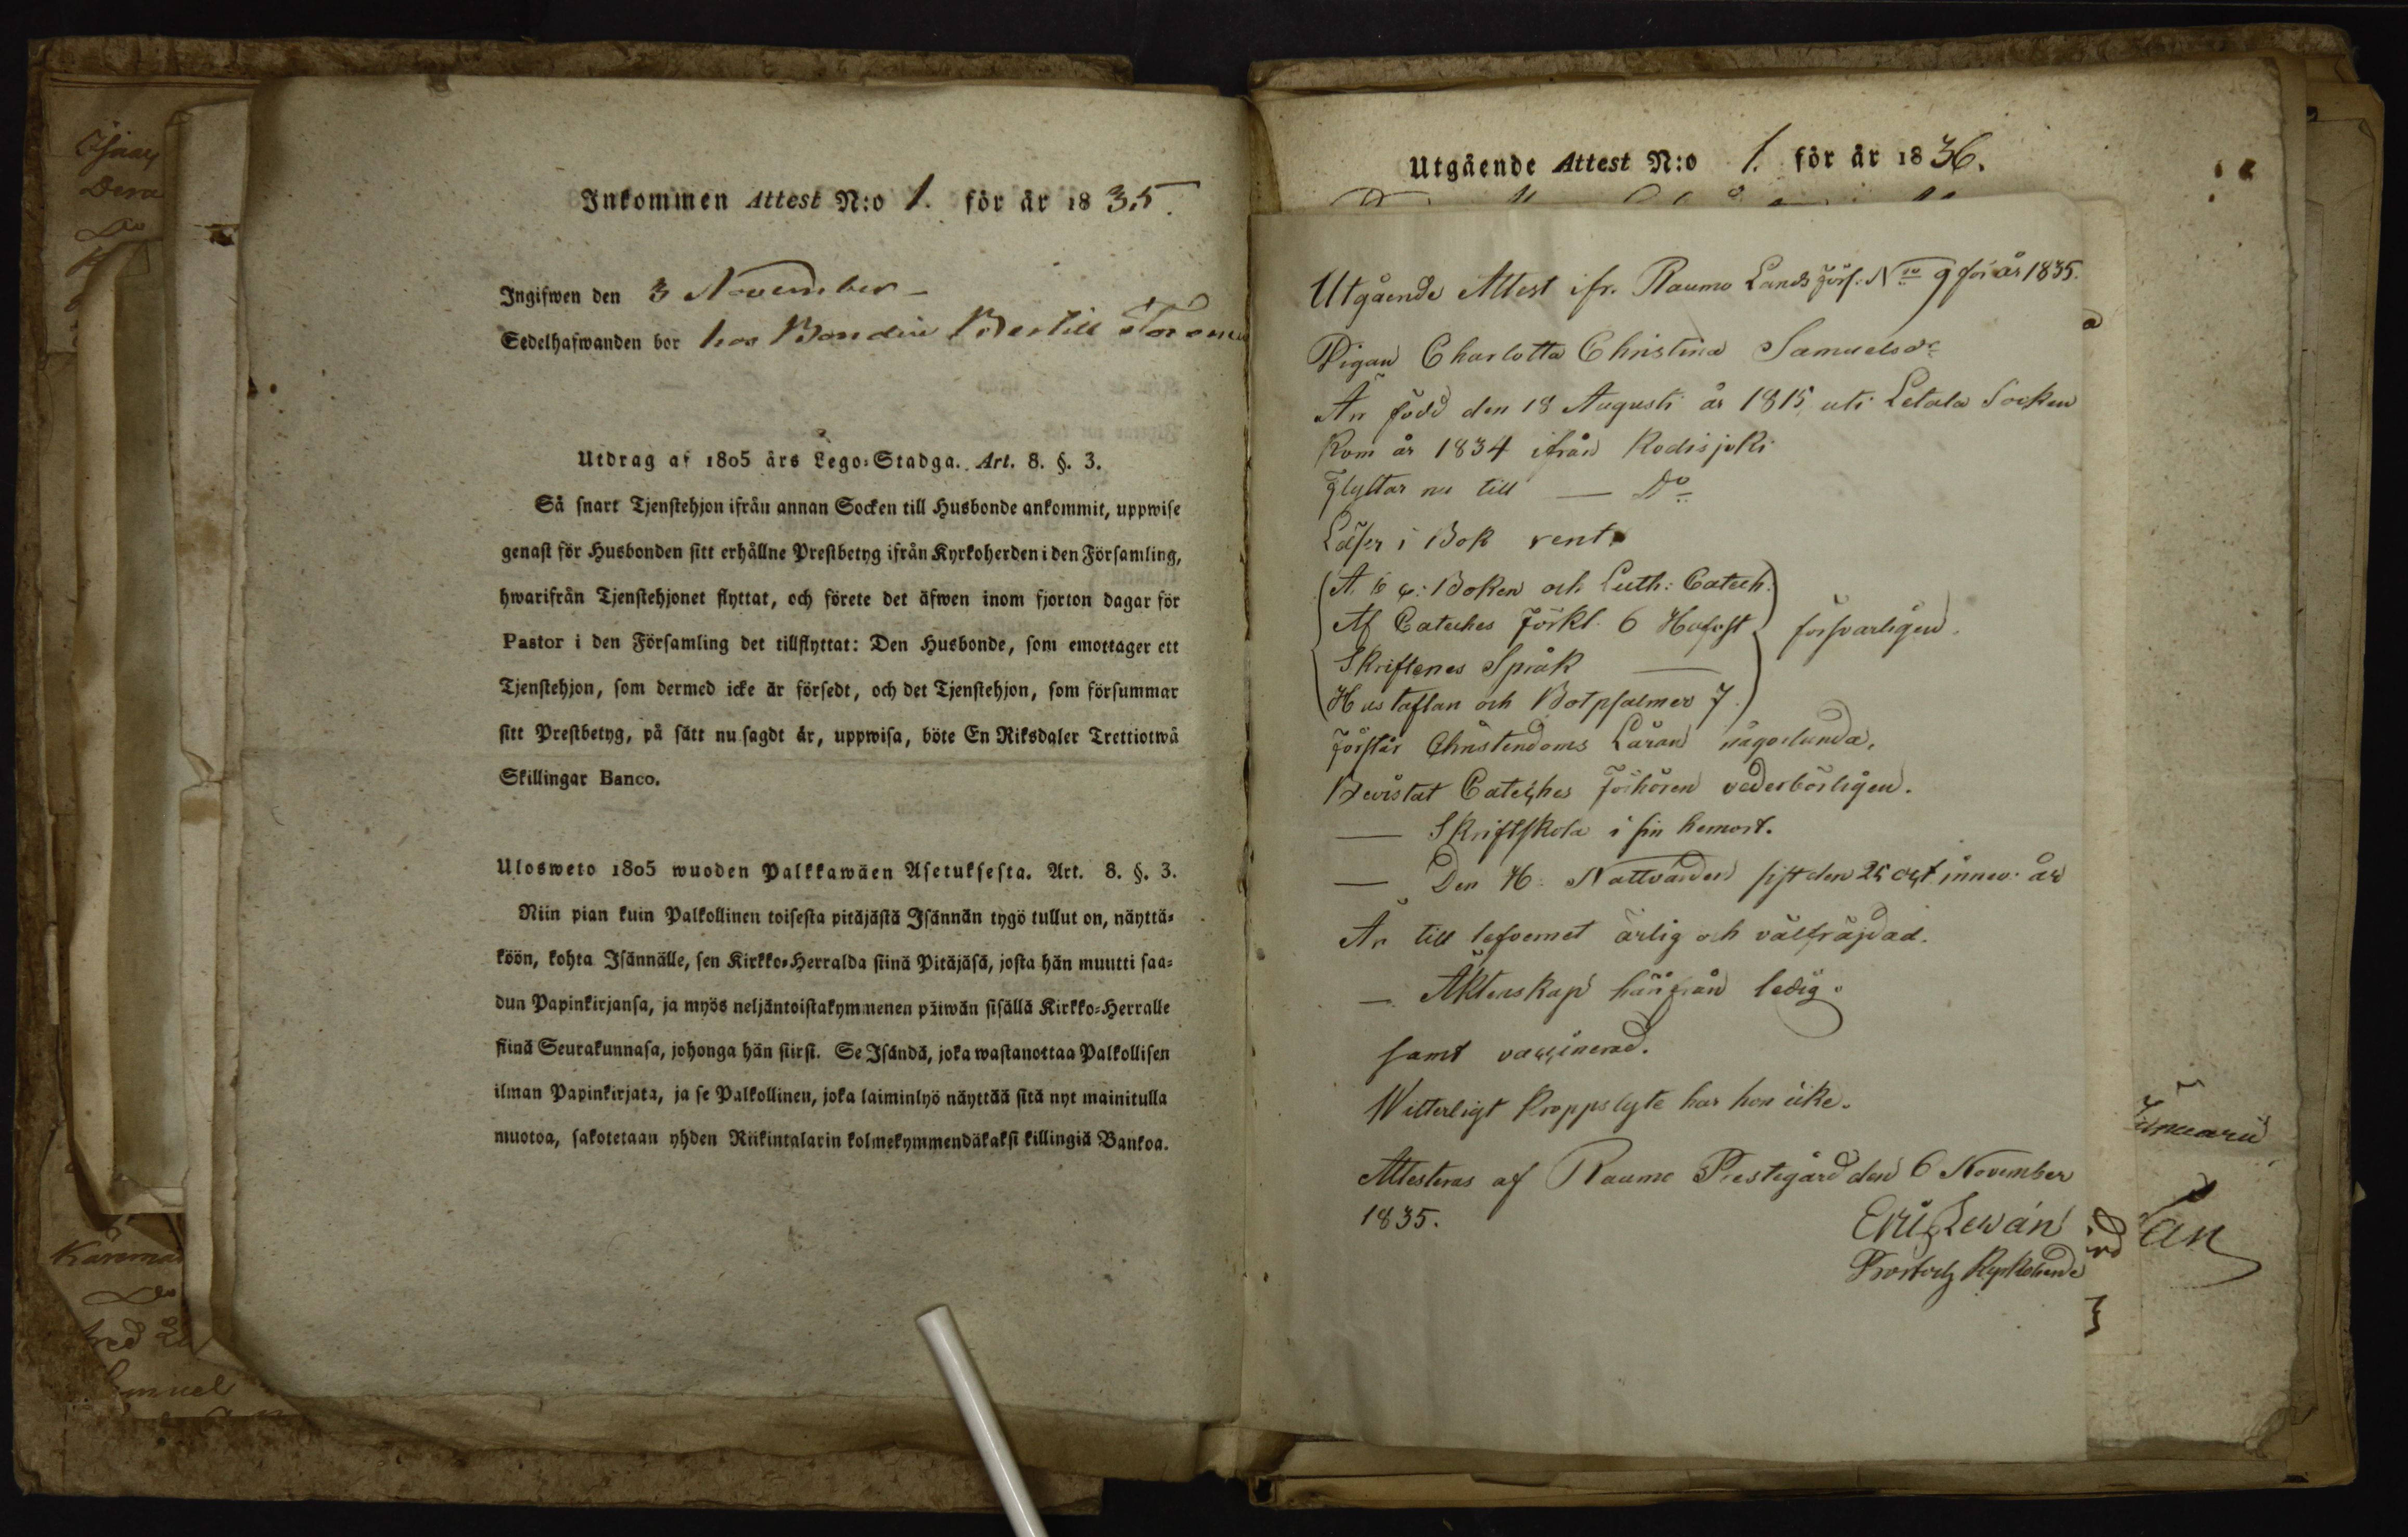 Inkommen Attest N:o 1. för år 1835.
Ingifwen den 3 November
Sedelhafwanden bor hos Bonden Bertill
Utdrag af 1805 års Lego-Stadga. Art. 8. §. 3.
Så snart Tjenstehjon ifrån annan Socken till Husbonde ankommit, uppwise
genast för Husbonden sitt erhållne Prestbetyg ifrån Kyrkoherden i den Församling,
hwarifrån Tjenstehjonet flyttat, och förete det äfwen inom fjorton dagar för
Pastor i den Församling det tillflyttat: Den Husbonde, som emottager ett
Tjenstehjon, som dermed icke är försedt, och det Tjenstehjon, som försummar
sitt Prestbetyg, på sätt nu sagdt är, uppwisa, böte En Riksdaler Trettiotwå
Skillingar Banco.
Ulosweto 1805 wuoden Palkkawäen Asetuksesta. Art. 8. §. 3.
Niin pian kuin Palkollinen toisesta pitäjästä Isännän tygö tullut on, näyttä-
köön, kohta Isännälle, sen Kirkko-Herralda siinä Pitäjäsä, josta hän muutti saa-
dun Papinkirjansa, ja myös neljäntoistakymmenen päiwän sisällä Kirkko-Herralle
siinä Seurakunnasa, johonga hän siirsi. Se Isändä, joka wastanottaa Palkollisen
ilman Papinkirjata, ja se Palkollinen, joka laiminlyö näyttää sitä nyt mainitulla
muotoa, sakotetaan yhden Riikintalarin kolmekymmendäkaksi killingiä Bankoa.
Utgående Attest N:o 1. för år 1836.
Utgående Attest ifr. Raumo Lands Förs. No 9 för år 1835.
Pigan Charlotta Christina Samuelsdr
Är född den 18 Augusti år 1815 uti Letala Socken
Kom år 1834 ifrån Kodisjoki
Flyttar nu till — Do
Läser i Bok rent.
A. b c: Boken och Luth: Catech.
Af Cateches Förkl. 6 Hufvst försvarligen.
Skriftenes Språk —
Hustaflan och Botpsalmer 7
Förstår Christendoms Läran någorlunda.
Bevistat Cateches Förhören vederbörligen.
— Skriftskola i sin hemort.
— Den H: Nattvarden sist den 25 oct innev. år
Är till lefvernet ärlig och välfräjdad.
— Äktenskap härifrån ledig.
samt vaccinerad.
Witterligt kroppslyte har hon icke.
Attesteras af Raumo Prestegård den 6 November
1835.
Eric Lewán
Prost och Kyrkoherde
Januarii